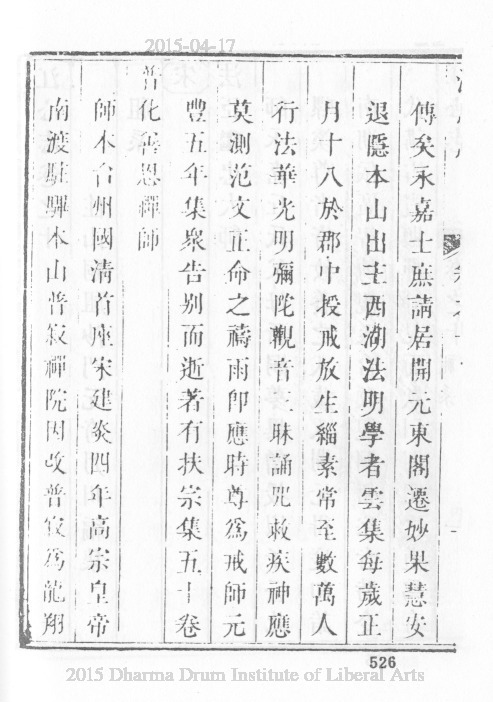 2015-04-17
傳矣永嘉士庶請居開元東閣遷妙果慧安
退隱本山出主西湖法明學者雲集每歲正
月十八於郡中授戒放生緇素常至數萬人
行法華光明彌陀觀音三昧誦咒救疾神應
莫測范文正命之禱雨卽應時尊爲戒師元
豐五年集衆告别而逝著有扶宗集五十卷
普化善恩禪師
師本台州國清首座宋建炎四年高宗皇帝
南渡駐驆本山普寂禪院因改普寂爲龍翔
526
2015 Dharma Drum Institute of Liberal Arts